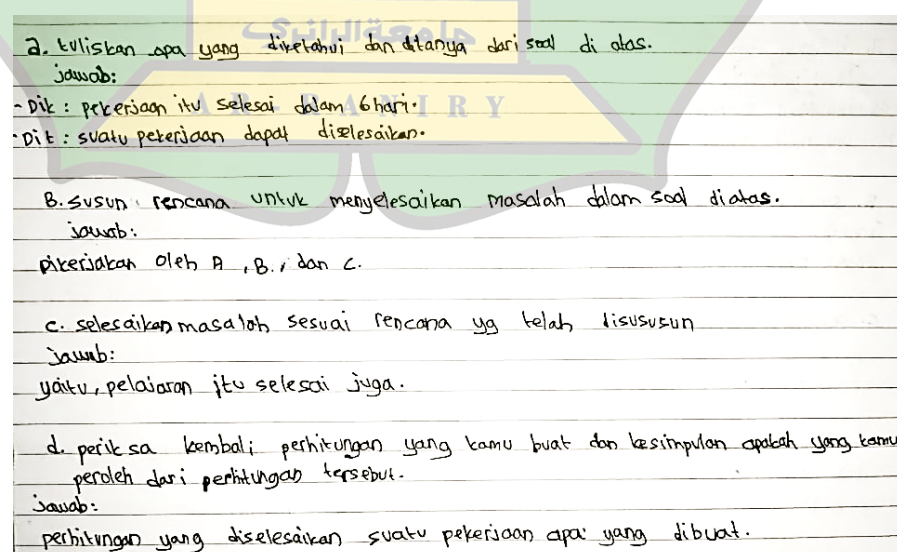 جامعة الرانري
a. tuliskan apa yang diketahui dan ditanya dari soal di atas.
jawab:
A R - R A N I R Y
- Dik : pekerjaan itu selesai dalam 6 hari.
- Dit : suatu pekerjaan dapat diselesaikan.
B. susun rencana untuk menyelesaikan masalah dalam soal diatas.
jawab:
pikerjakan oleh A , B. , dan C.
c. selesaikan masalah sesuai rencana yg telah disususun
jawab:
yaitu, pelajaran itu selesai juga.
d. periksa kembali perhitungan yang kamu buat dan kesimpulan apakah yang kamu
peroleh dari perhitungan tersebut.
Jawab:
perhitungan yang diselesaikan suatu pekerjaan apa yang dibuat.